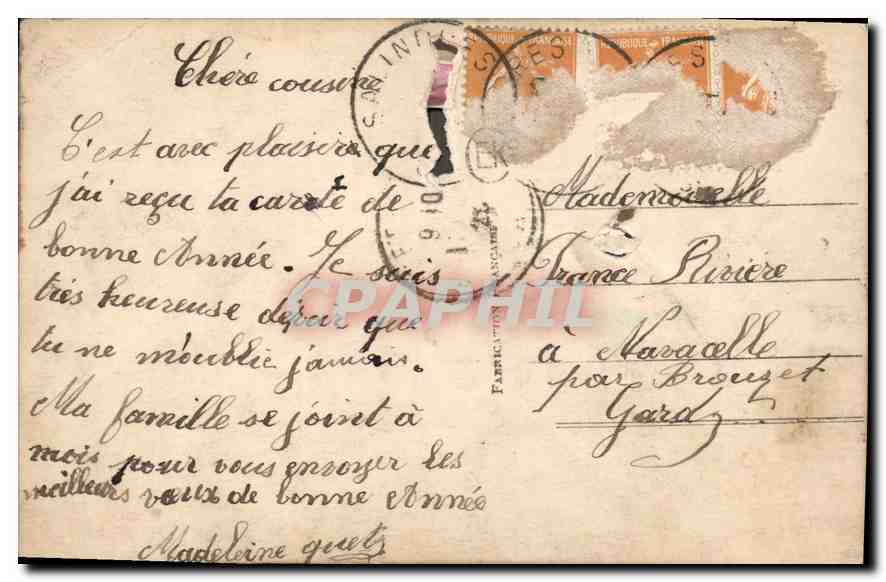 Chére cousine
C'est avec plaisire que
j'ai reçu ta carte de
bonne Année. Je suis
trés heureuse de
que
tu ne m'oublie jamais.
Ma famille se joint à
mois pour vous envoyer les
meilleurs vœux de bonne Année
Madeleine
REPUBLIQUE FRANÇAISE
REPUBLIQUE FRANÇ
FABRICATION FRANÇAISE
CPAPHIL
Mademoiselle
France Rivière
à Navacelle
par Brouzet
Gard